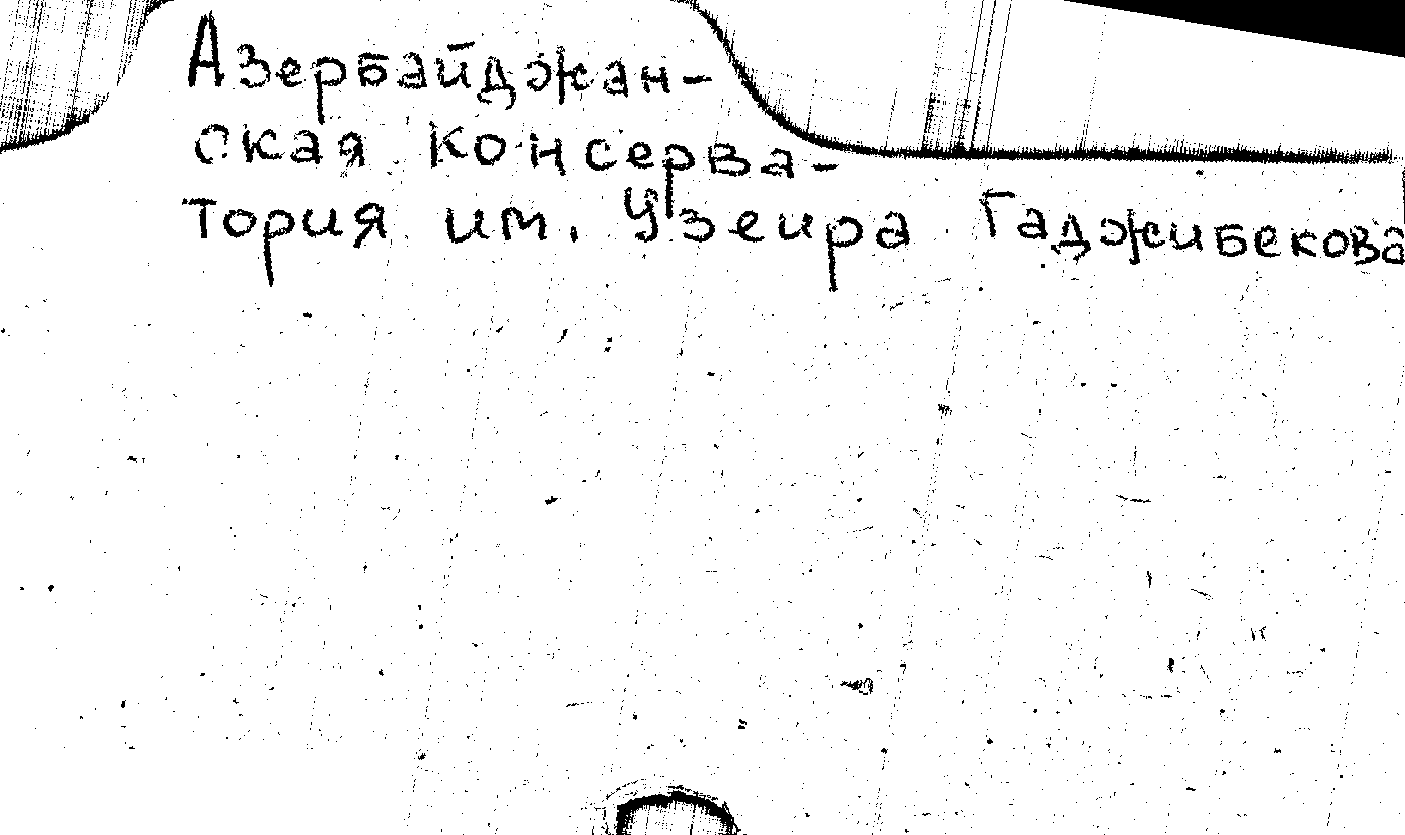 Азербайджан-
ская консерва-
тория им. Узеира Гаджибекова